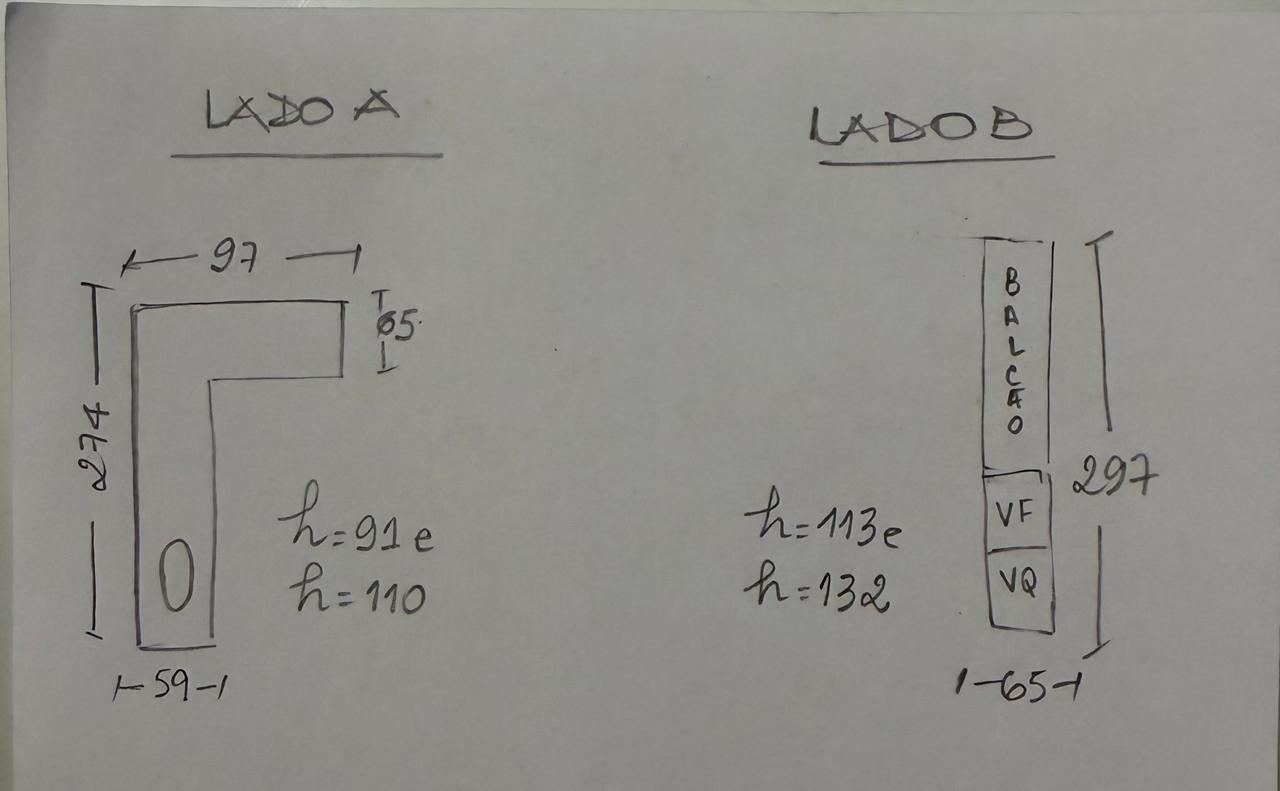 LADO A
97
65
274
h=91 e
h=110
59
LADO B
BALCÃO
VF
VQ
297
h=113 e
h=132
65